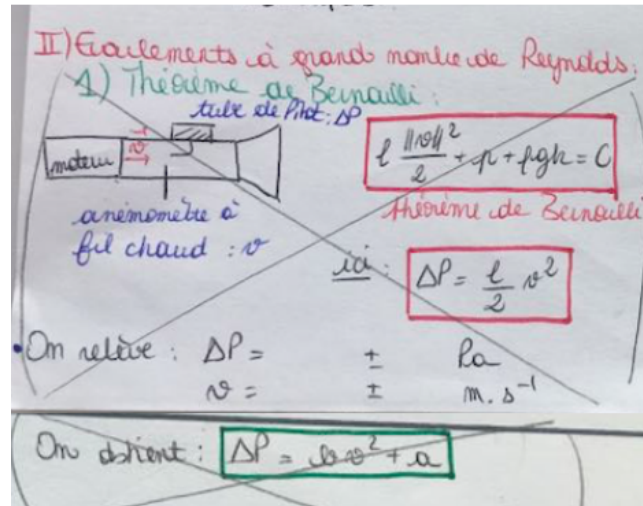 II) Ecoulements à grand nombre de Reynolds:
1) Théorème de Bernoulli:
tube de Pitot: ΔP
moteur
v
ρ ||v||²/2 + p + ρgh = C
anémomètre à
fil chaud : v
théorème de Bernoulli
ici: ΔP = ρ/2 v²
• On relève : ΔP = ± Pa
v = ± m.s⁻¹
On obtient: ΔP = bv² + a